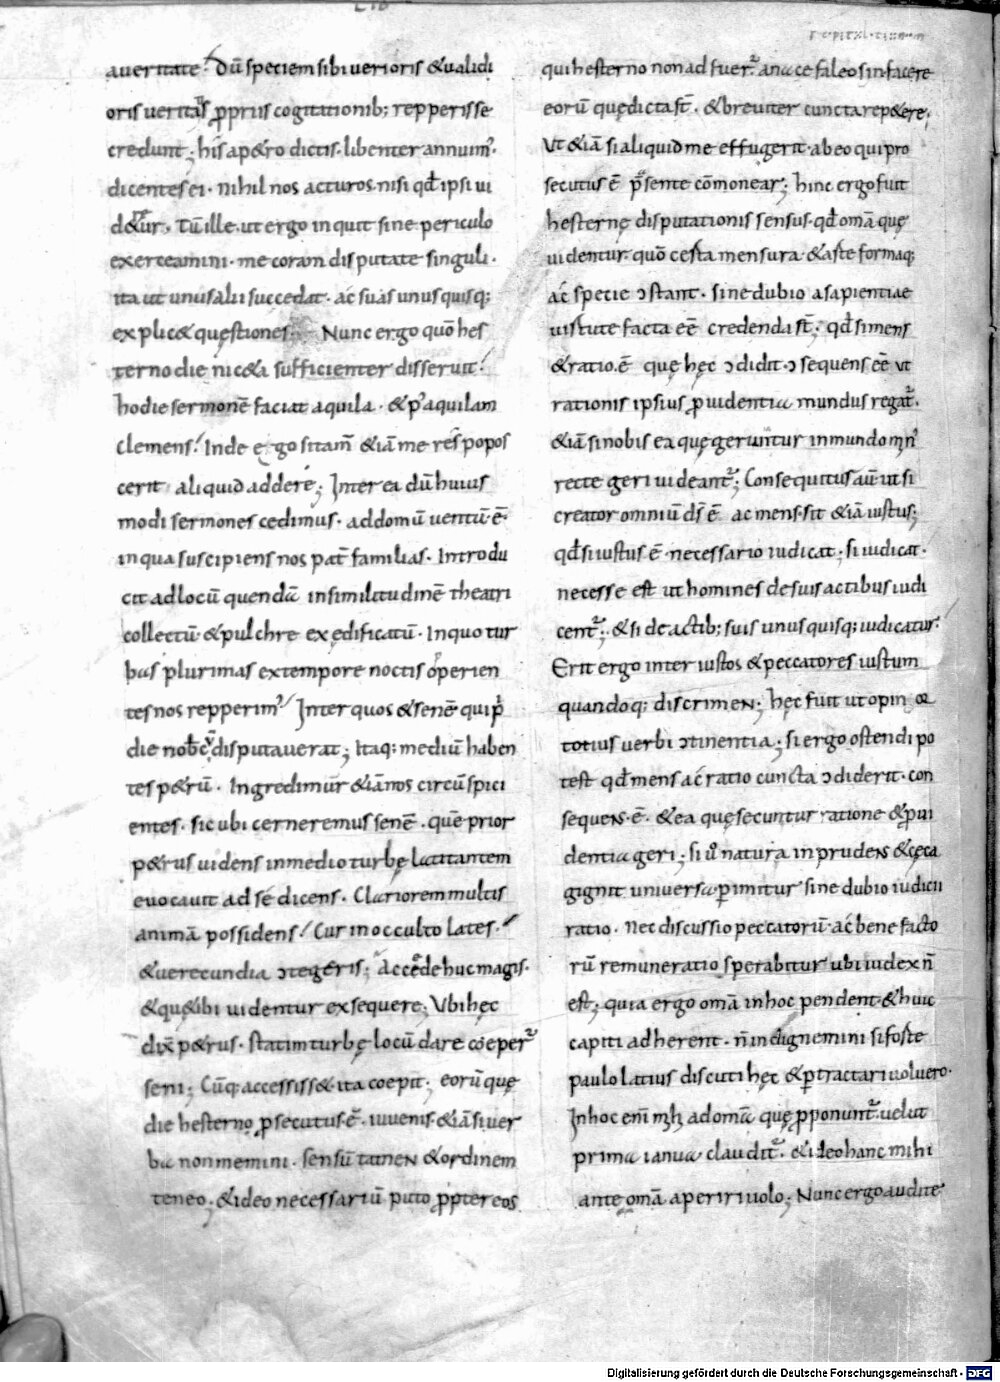 LIB
a veritate. Dū speciem sibi verioris & validi
oris veritatis ꝓpriis cogitationib; repperisse
credunt; his a p&ro dictis libenter annuim᷒.
dicentes ei. nihil nos acturos nisi qđ ipsi vi
d&ur. Tū ille. ut ergo inquit sine periculo
exerceamini. me coram disputate singuli.
ita ut unus alii succedat. ac suas unusquisq;
explic& quęstiones. Nunc ergo quō hes
terno die nic&a sufficienter disseruit.
hodie sermonē faciat aquila. & p᷒ aquilam
clemens. Inde ego si tam̄ &iā me res popos
cerit aliquid addere; Interea dū huius
modi sermones cedimus. ad domū ventū ē.
in qua suscipiens nos pat̄ familias. Introdu
cit ad locū quendā in similitudinē theatri
collectū & pulchre exędificatū. In quo tur
bas plurimas ex tempore noctis operien
tes nos repperim᷒. Inter quos & senē qui p̄
die nob̄cū disputaverat; Itaq; mediū haben
tes p&rū. Ingredimur &iā nos circūspici
entes. sicubi cerneremus senē. quē prior
p&rus videns in medio turbę latitantem
evocavit ad se dicens. Clariorem multis
animā possidens. Cur in occulto lates.
& verecundia ɔtegeris; Accede huc magis.
& quę tibi videntur exsequere; Vbi hęc
dix̄ p&rus. statim turbę locū dare coeper̄
seni; Cūq; accessiss& ita coepit; eorū quę
die hesterno ꝓsecutus ē. iuvenis &iā si ver
ba non memini. sensū tamen & ordinem
teneo; & ideo necessariū puto ꝓpter eos
qui hesterno non adfuer̄. a niceta leo sin facere
eorū quę dicta st̄. & breviter cuncta rep&ere;
Ut &iā si aliquid me effugerit ab eo qui pro
secutus ē p̄sente cōmonear; hinc ergo fuit
hesternę disputationis sensus. qđ omā quę
videntur quō certa mensura & arte formaq;
ac specie ɔstant. sine dubio a sapientiae
virtute facta eē credenda st̄; qđ si mens
& ratio ē quę hęc ɔdidit. ɔsequens ē ut
rationis ipsius ꝓvidentia mundus regat̄.
&iā si nobis ea quę geruntur in mundo m̄n
recte geri videant̄; Consequitus aū ut si
creator omniū d̄s ē ac mens. sit &iā iustus;
qđ si iustus ē. necessario iudicat; si iudicat.
necesse est ut homines de suis actibus iudi
cent̄; & si de actib; suis unusquisq; iudicatur.
Erit ergo inter iustos & peccatores iustum
quandoq; discrimen; hęc fuit ut opinor
totius verbi ɔtinentia; si ergo ostendi po
test qđ mens ac ratio cuncta ɔdiderit. con
sequens ē. & ea quę secuntur ratione & ꝓvi
dentia geri; si v̊ natura inprudens & cęca
gignit universa ꝑimitur sine dubio iudicii
ratio. nec discussio peccatorū ac bene facto
rū remuneratio sperabitur ubi iudex n̄
est; quia ergo omā in hoc pendent & huic
capiti adherent. n̄ indignemini si foste
paulo latius discuti hęc & ꝑtractari voluero.
In hoc eni m̄ ad omā quę ꝓponunt̄. velut
prima ianua claudit̄. & ideo hanc mihi
ante omā aperiri volo; Nunc ergo audite
Digitalisierung gefördert durch die Deutsche Forschungsgemeinschaft - DFG